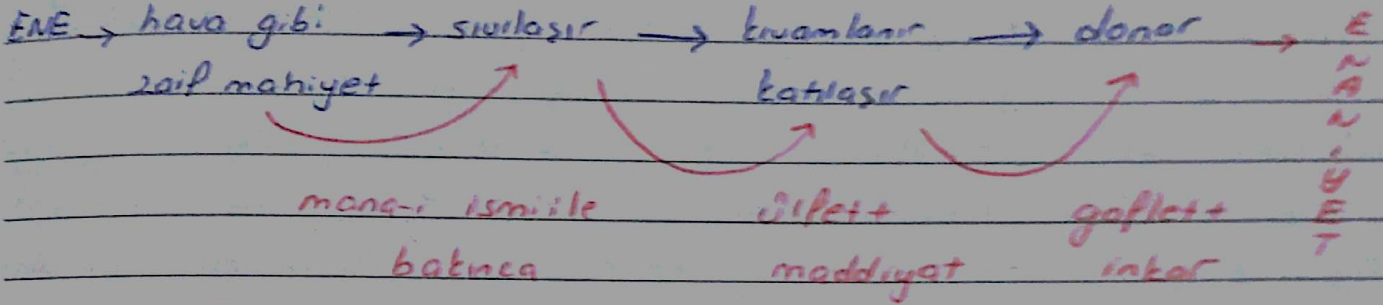 ENE → hava gibi → sıvılaşır → kıvamlanır → donar → ENANİYET
zaif mahiyet katılaşır
mana-i ismi ile ülfet + gaflet +
bakınca maddiyat inkar